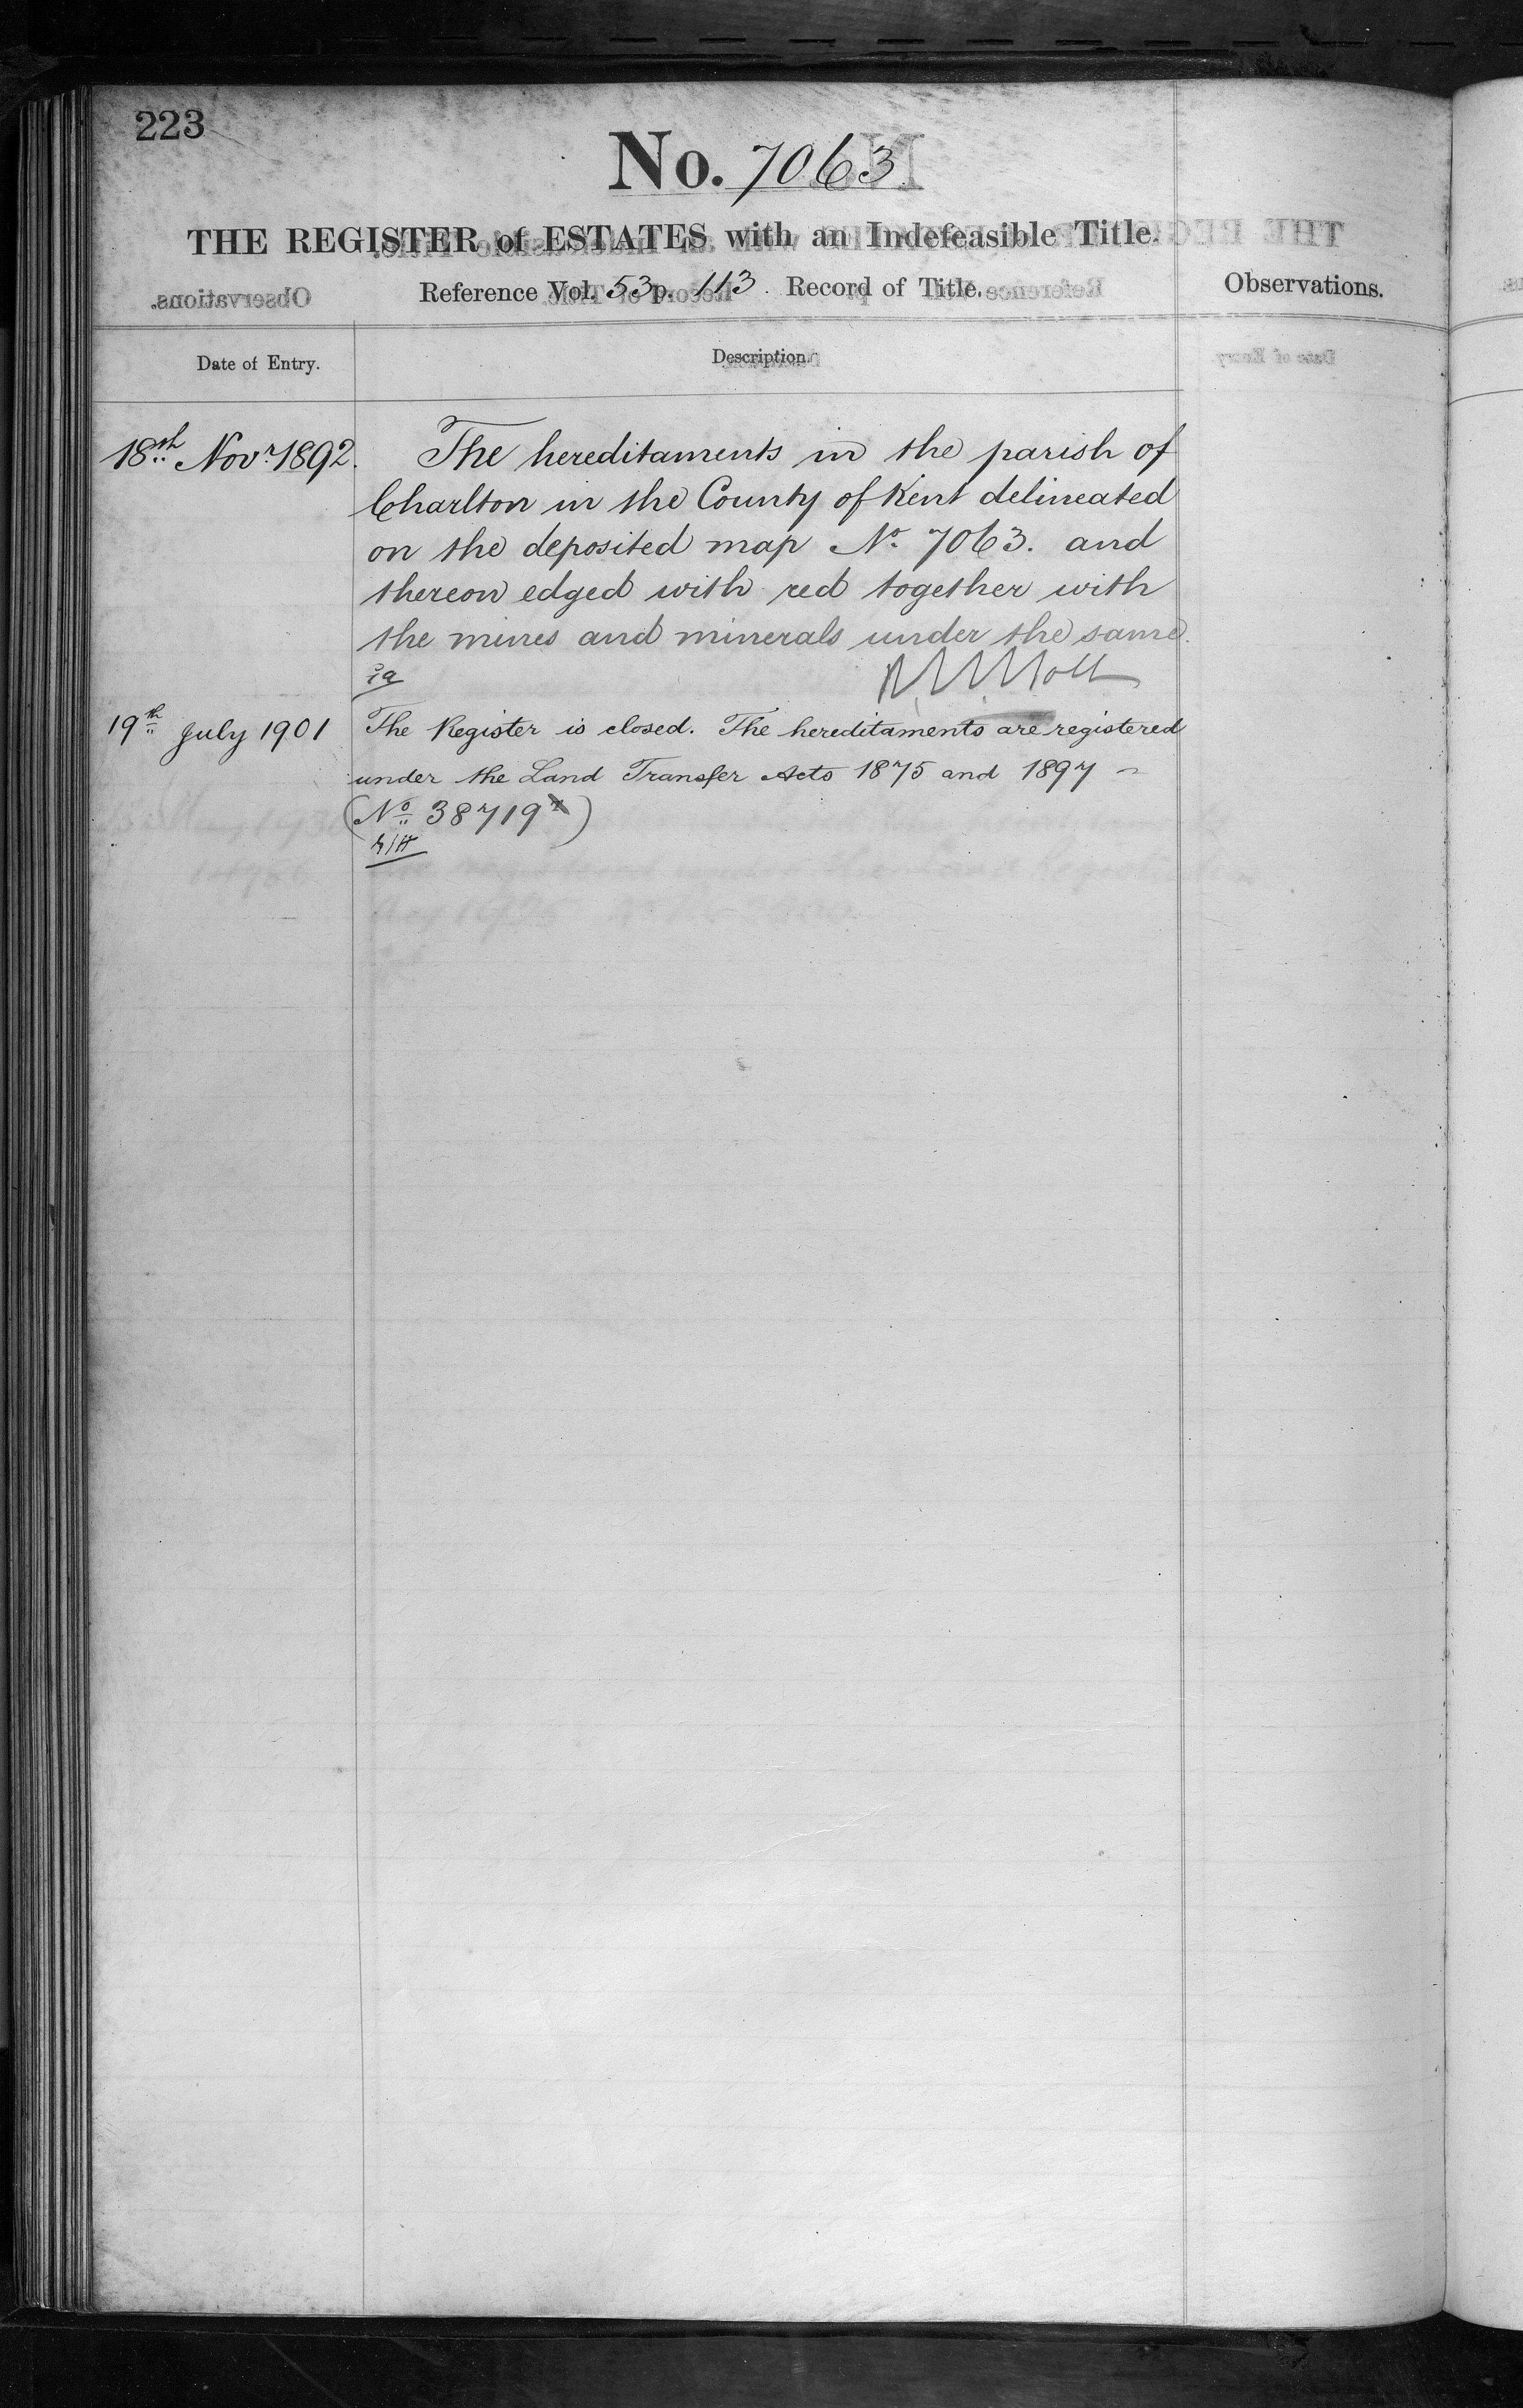 223
No. 7063
THE REGISTER of ESTATES with an Indefeasible Title.
Reference Vol. 53 p. 113. Record of Title.
Observations.
Date of Entry.
Description.
18th Novr 1892.
The hereditaments in the parish of
Charlton in the County of Kent delineated
on the deposited map No. 7063. and
thereon edged with red together with
the mines and minerals under the same.
19th July 1901
The Register is closed. The hereditaments are registered
under the Land Transfer Acts 1875 and 1897 -
(No 38719)